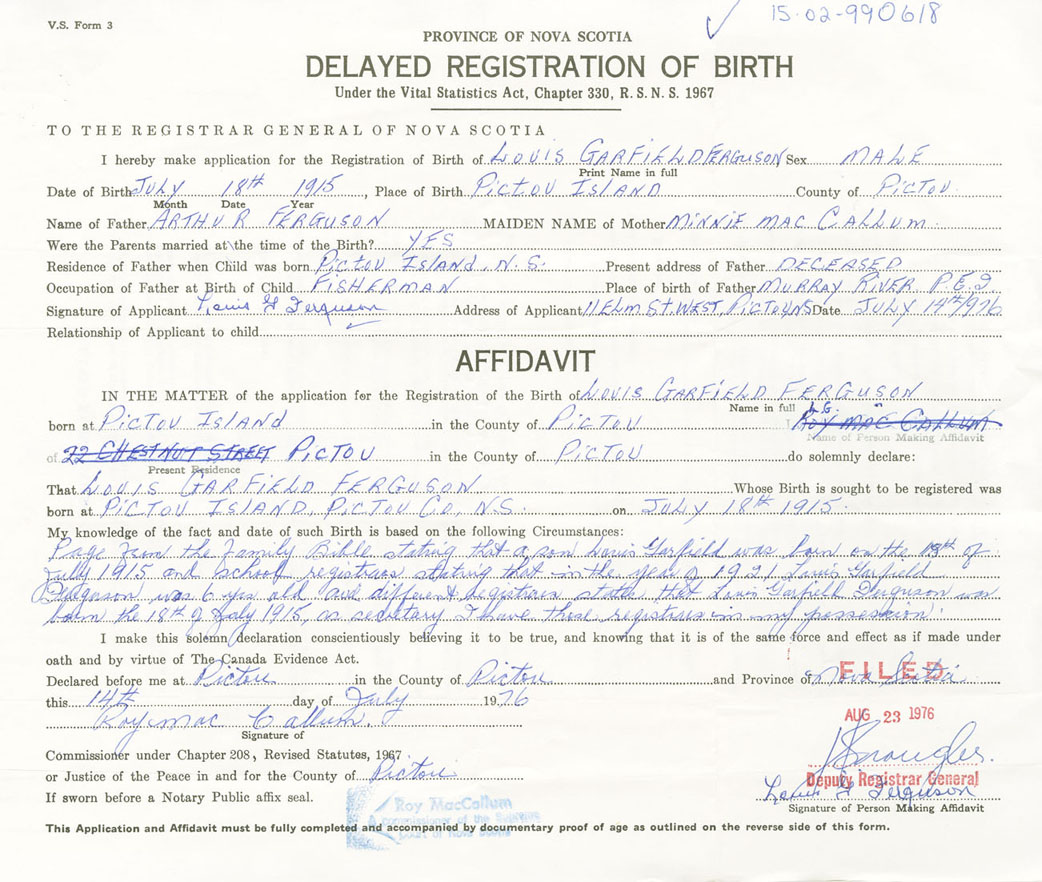 V.S. Form 3
15-02-990618
PROVINCE OF NOVA SCOTIA
DELAYED REGISTRATION OF BIRTH
Under the Vital Statistics Act, Chapter 330, R. S. N. S. 1967
TO THE REGISTRAR GENERAL OF NOVA SCOTIA
I hereby make application for the Registration of Birth of LOUIS GARFIELD FERGUSON Sex MALE
Print Name in full
Date of Birth JULY 18th 1915, Place of Birth PICTOU ISLAND County of PICTOU
Month Date Year
Name of Father ARTHUR FERGUSON MAIDEN NAME of Mother MINNIE MAC CALLUM.
Were the Parents married at the time of the Birth? YES
Residence of Father when Child was born PICTOU ISLAND, N.S. Present address of Father DECEASED
Occupation of Father at Birth of Child FISHERMAN Place of birth of Father MURRAY RIVER P.E.I.
Signature of Applicant Louis G Ferguson Address of Applicant 11 ELM ST. WEST, PICTOU NS Date JULY 14th 1976
Relationship of Applicant to child
AFFIDAVIT
IN THE MATTER of the application for the Registration of the Birth of LOUIS GARFIELD FERGUSON
Name in full
born at PICTOU ISLAND in the County of PICTOU L.G. ROY MAC CALLUM
Name of Person Making Affidavit
of 22 CHESTNUT STREET PICTOU in the County of PICTOU do solemnly declare:
Present Residence
That LOUIS GARFIELD FERGUSON Whose Birth is sought to be registered was
born at PICTOU ISLAND, PICTOU CO, N.S. on JULY 18th 1915.
My knowledge of the fact and date of such Birth is based on the following Circumstances:
Page from the Family Bible stating that a son Louis Garfield was born on the of
July 1915 and school registrars stating that in the year of 1921 Louis Garfield
Ferguson was 6 yrs old and different registrars states that Louis Garfield Ferguson was
born the 18th of July 1915, as secretary I have these registrars in my possession.
I make this solemn declaration conscientiously believing it to be true, and knowing that it is of the same force and effect as if made under
oath and by virtue of The Canada Evidence Act.
Declared before me at Pictou in the County of Pictou and Province of Nova Scotia
FILED
this 14th day of July 1976
AUG 23 1976
Roy Mac Callum.
Signature of
Commissioner under Chapter 208, Revised Statutes, 1967
or Justice of the Peace in and for the County of Pictou
Deputy Registrar General
Louis G Ferguson
If sworn before a Notary Public affix seal.
Signature of Person Making Affidavit
Roy MacCallum
A commissioner of the Supreme
Court of Nova Scotia
This Application and Affidavit must be fully completed and accompanied by documentary proof of age as outlined on the reverse side of this form.